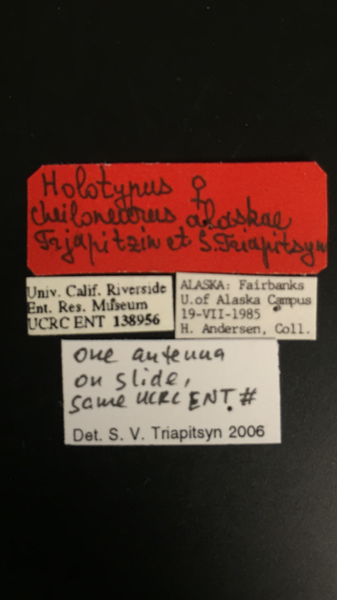 Holotypus ♀
Cheiloneurus alaskae
Trjapitzin et S. Triapitsyn
Univ. Calif. Riverside
Ent. Res. Museum
UCRC ENT 138956
ALASKA: Fairbanks
U.of Alaska Campus
19-VII-1985
H. Andersen, Coll.
one antenna
on slide,
same UCRC ENT. #
Det. S. V. Triapitsyn 2006